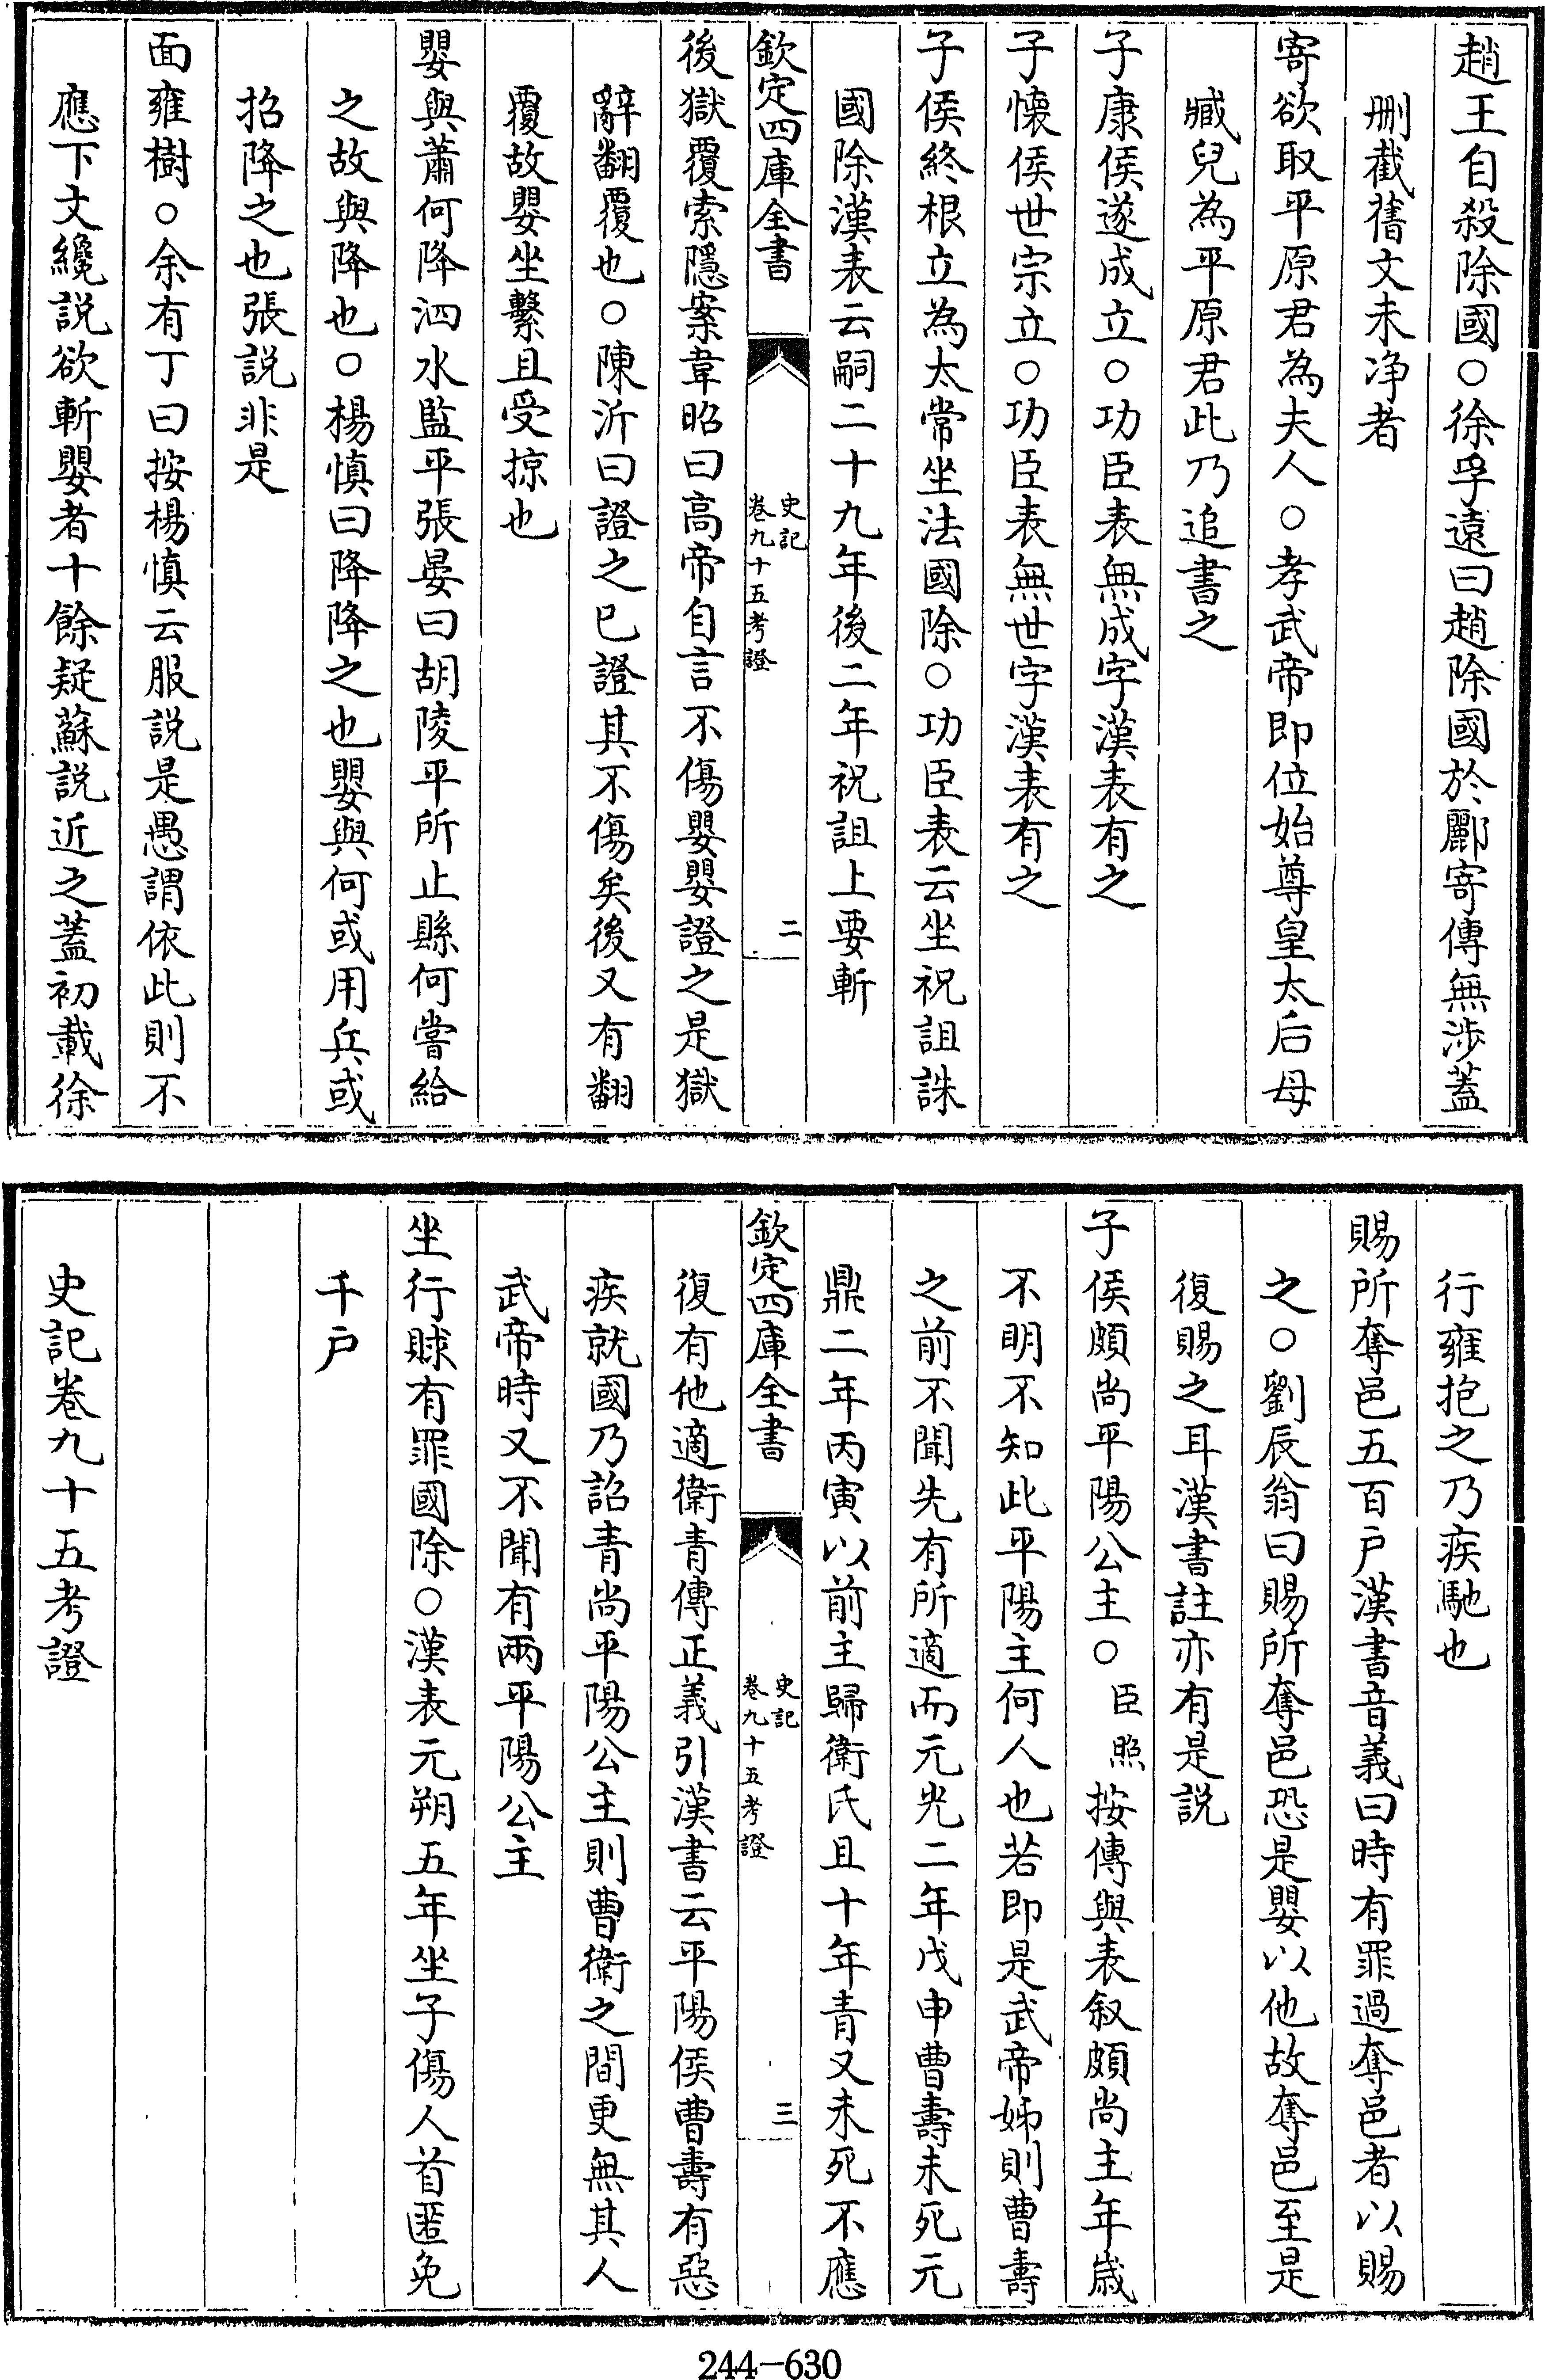 趙王自殺除國○徐孚遠曰趙除國於酈寄傳無涉蓋
刪截舊文未淨者
寄欲取平原君為夫人○孝武帝即位始尊皇太后母
臧兒為平原君此乃追書之
子康侯遂成立○功臣表無成字漢表有之
子懷侯世宗立○功臣表無世字漢表有之
子侯終根立為太常坐法國除○功臣表云坐祝詛誅
國除漢表云嗣二十九年後二年祝詛上要斬
欽定四庫全書
史記
卷九十五考證
二
後獄覆索隱案韋昭曰高帝自言不傷嬰嬰證之是獄
辭翻覆也○陳沂曰證之已證其不傷矣後又有翻
覆故嬰坐繫且受掠也
嬰與蕭何降泗水監平張晏曰胡陵平所止縣何嘗給
之故與降也○楊慎曰降降之也嬰與何或用兵或
招降之也張説非是
面雍樹○余有丁曰按楊慎云服説是愚謂依此則不
應下文纔説欲斬嬰者十餘疑蘇説近之蓋初載徐
行雍抱之乃疾馳也
賜所奪邑五百户漢書音義曰時有罪過奪邑者以賜
之○劉辰翁曰賜所奪邑恐是嬰以他故奪邑至是
復賜之耳漢書註亦有是説
子侯頗尚平陽公主○臣照按傳與表叙頗尚主年歲
不明不知此平陽主何人也若即是武帝姊則曹壽
之前不聞先有所適而元光二年戊申曹壽未死元
鼎二年丙寅以前主歸衛氏且十年青又未死不應
欽定四庫全書
史記
卷九十五考證
三
復有他適衛青傳正義引漢書云平陽侯曹壽有惡
疾就國乃詔青尚平陽公主則曹衛之間更無其人
武帝時又不聞有兩平陽公主
坐行賕有罪國除○漢表元朔五年坐子傷人首匿免
千户
史記卷九十五考證
244-630